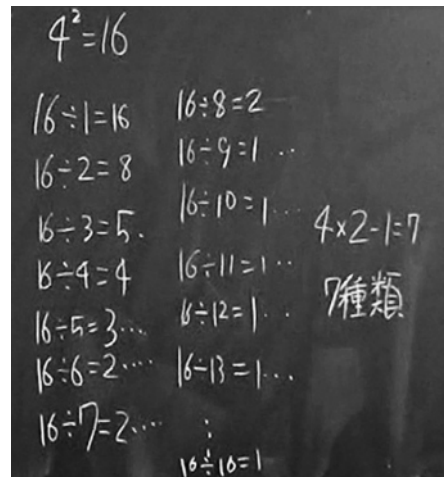 4²=16
16÷1=16
16÷2=8
16÷3=5.
16÷4=4
16÷5=3....
16÷6=2....
16÷7=2....
16÷8=2
16÷9=1..
16÷10=1...
16÷11=1..
16÷12=1..
16÷13=1...
⋮
16÷16=1
4×2-1=7
7種類